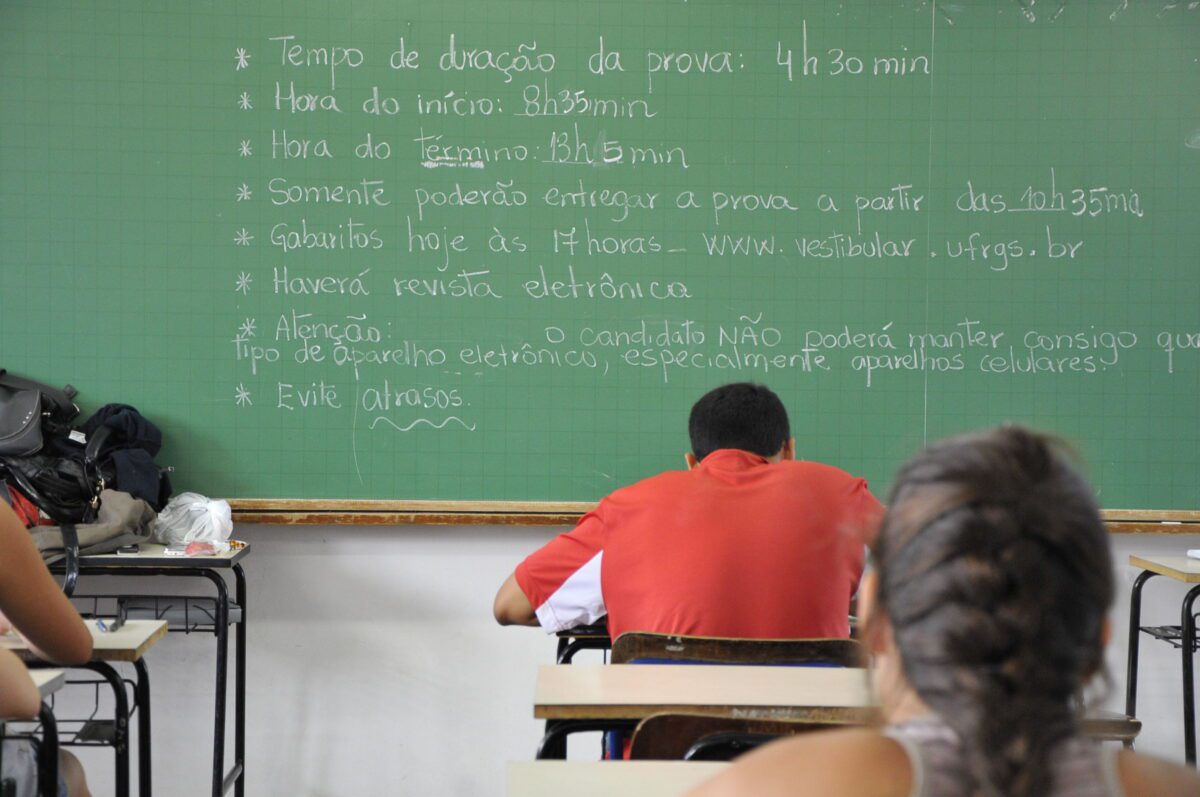 * Tempo de duração da prova: 4h30min
* Hora do início: 8h35min
* Hora do término: 13h5min
* Somente poderão entregar a prova a partir das 10h35
* Gabaritos hoje às 17horas - www.vestibular.ufrgs.br
* Haverá revista eletrônica
* Atenção: o candidato NÃO poderá manter consigo
tipo de aparelho eletrônico, especialmente aparelhos celulares.
* Evite atrasos.